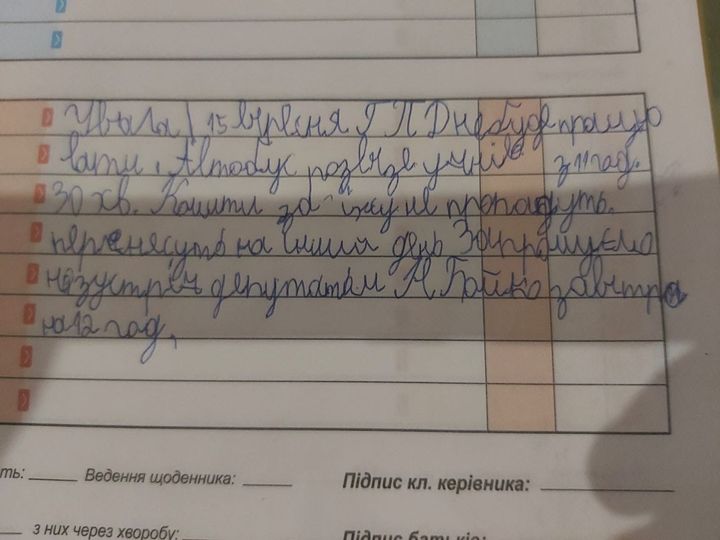 Увага! 15 вересня ГПД не буде працю
вати. Автобус розвезе учнів з 11 год.
30 хв. Кошти за їжу не пропадуть.
перенесуть на інший день Запрошуємо
на зустріч депутатам Н Бойко завтра
на 12 год.
ть: Ведення щоденника: Підпис кл. керівника:
з них через хворобу: Підпис батьків: